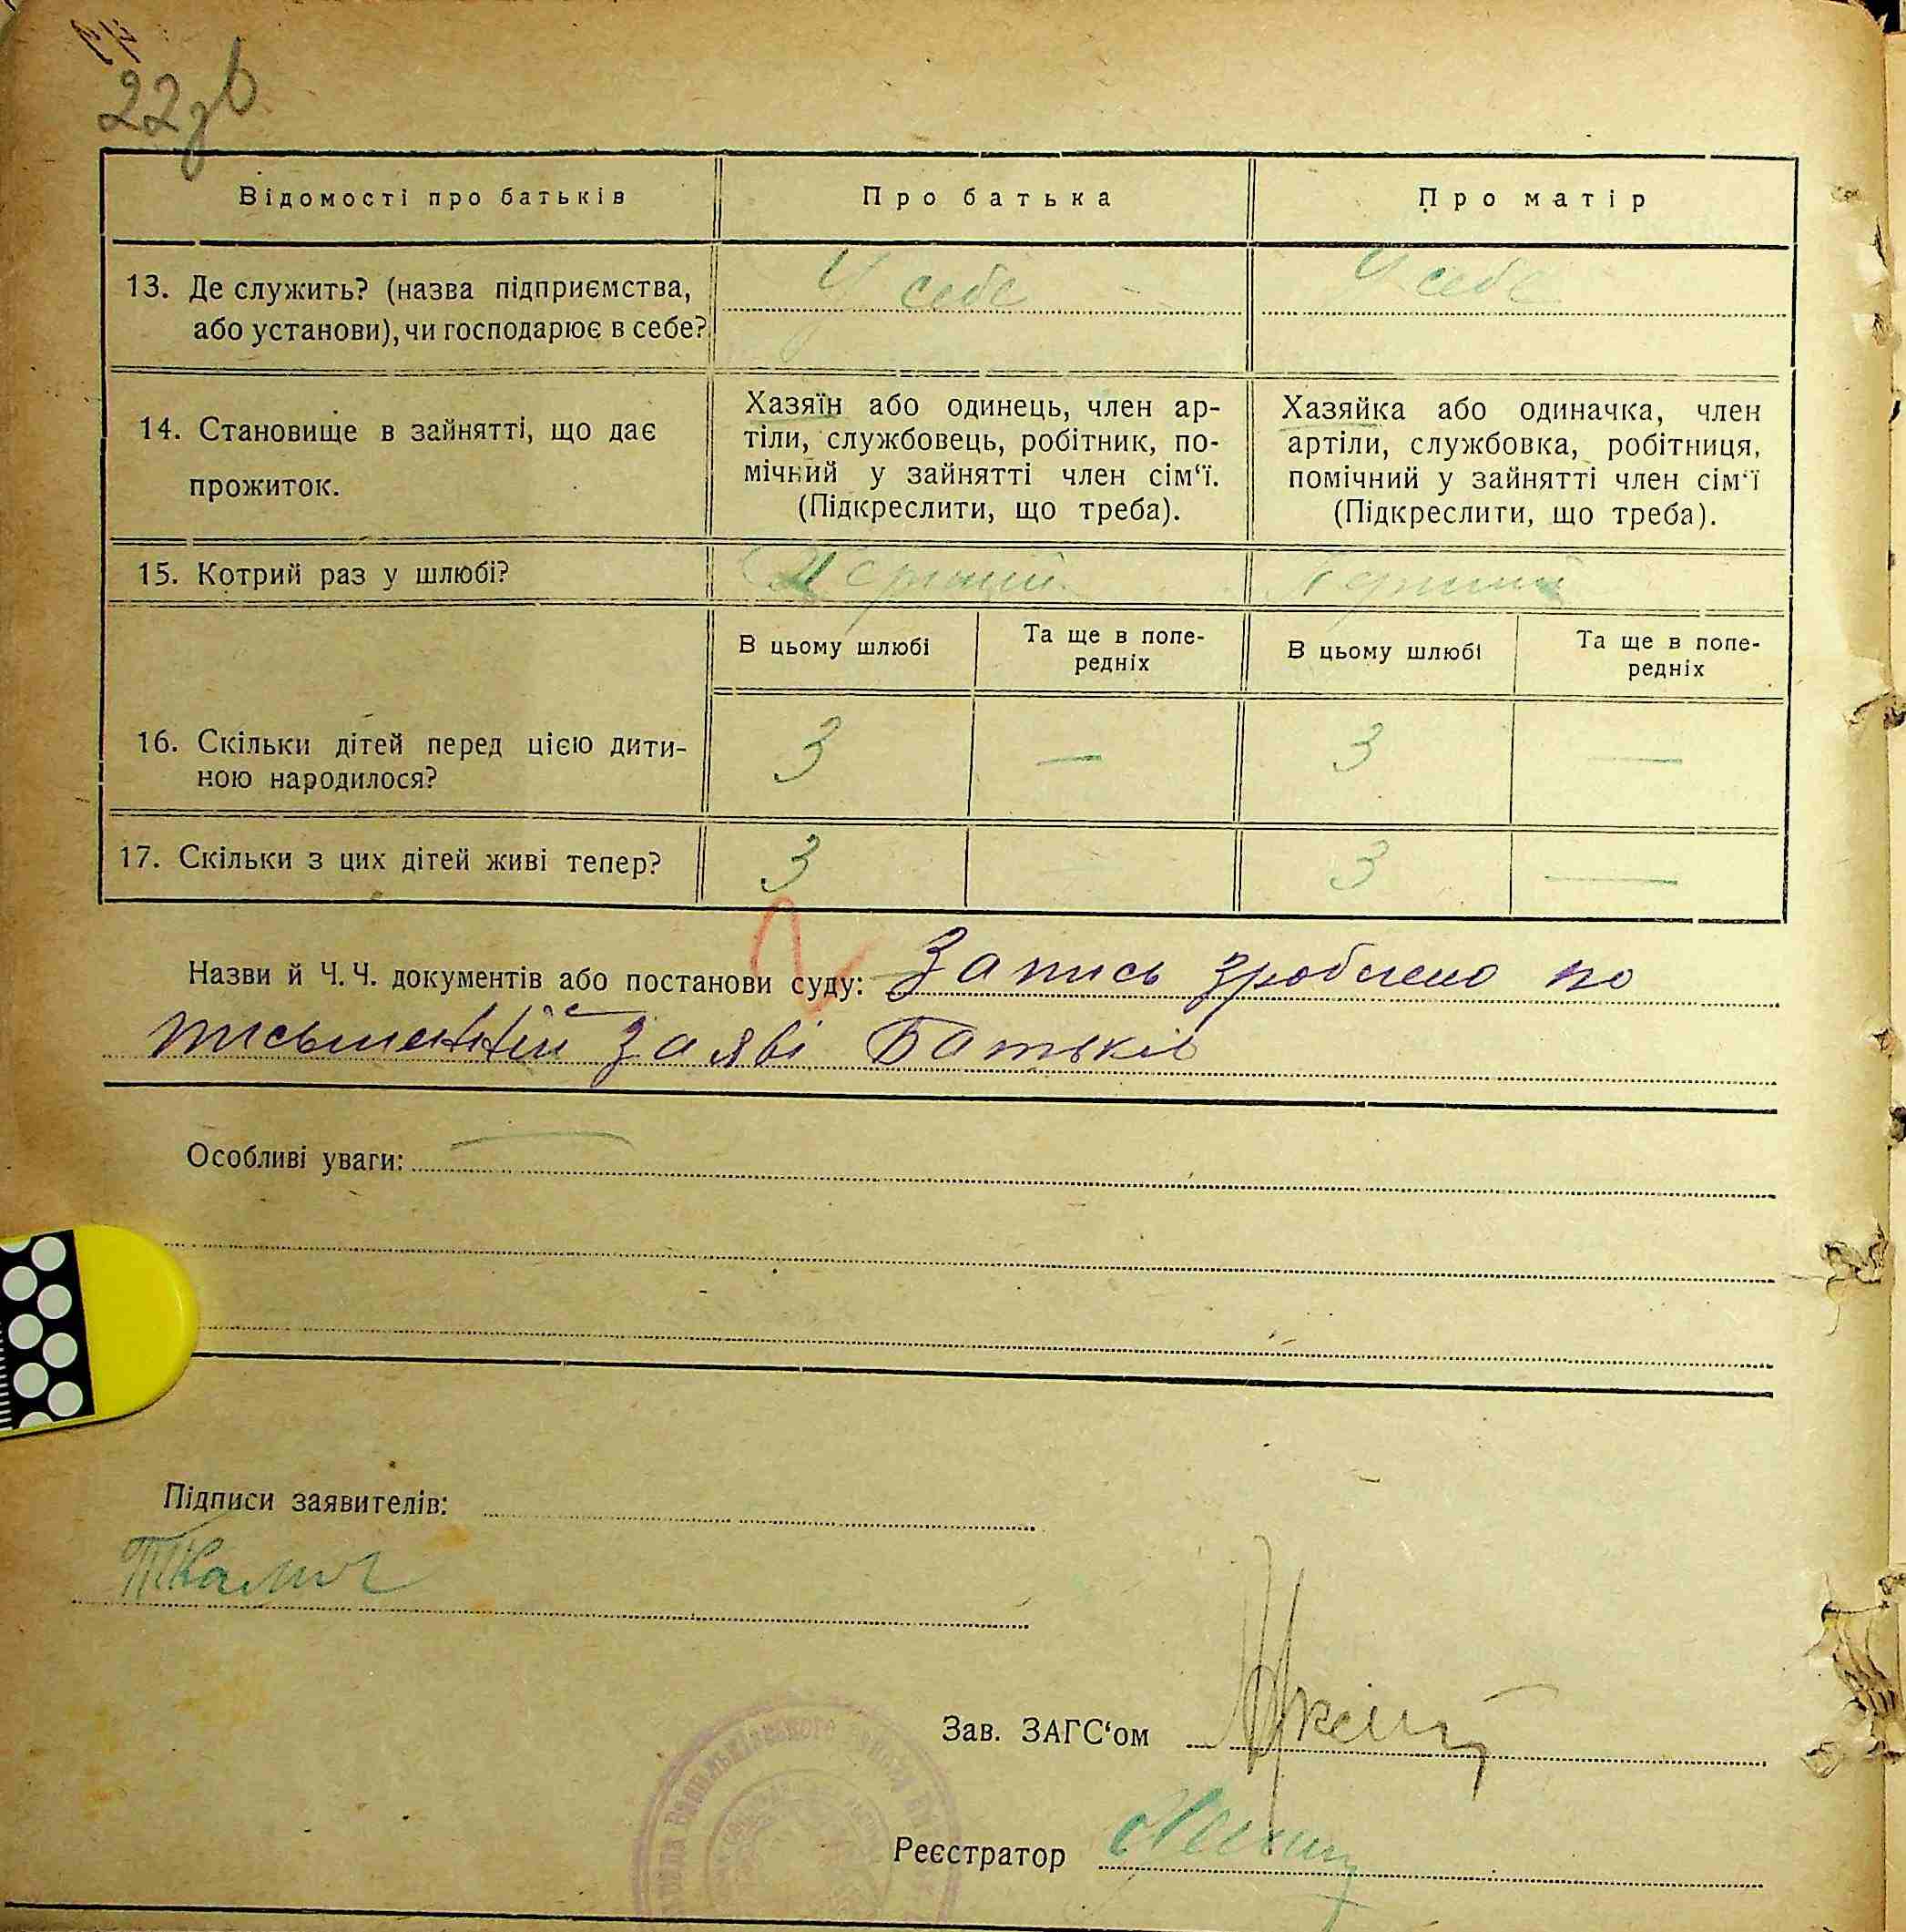 22зв
Відомості про батьків
Про батька
Про матір
13. Де служить? (назва підприємства,
або установи), чи господарює в себе?
У себе
У себе
14. Становище в зайнятті, що дає
прожиток.
Хазяїн або одинець, член ар-
тіли, службовець, робітник, по-
мічний у зайнятті член сім‘ї.
(Підкреслити, що треба).
Хазяйка або одиначка, член
артіли, службовка, робітниця,
помічний у зайнятті член сім‘ї
(Підкреслити, що треба).
15. Котрий раз у шлюбі?
Перший
Перший
В цьому шлюбі
Та ще в попе-
редніх
В цьому шлюбі
Та ще в попе-
редніх
16. Скільки дітей перед цією дити-
ною народилося?
3
—
3
—
17. Скільки з цих дітей живі тепер?
3
3
—
Назви й Ч. Ч. документів або постанови суду: Запись зроблено по
письменній заяві Батьків
Особливі уваги: —
Підписи заявителів:
Зав. ЗАГС‘ом
Реєстратор